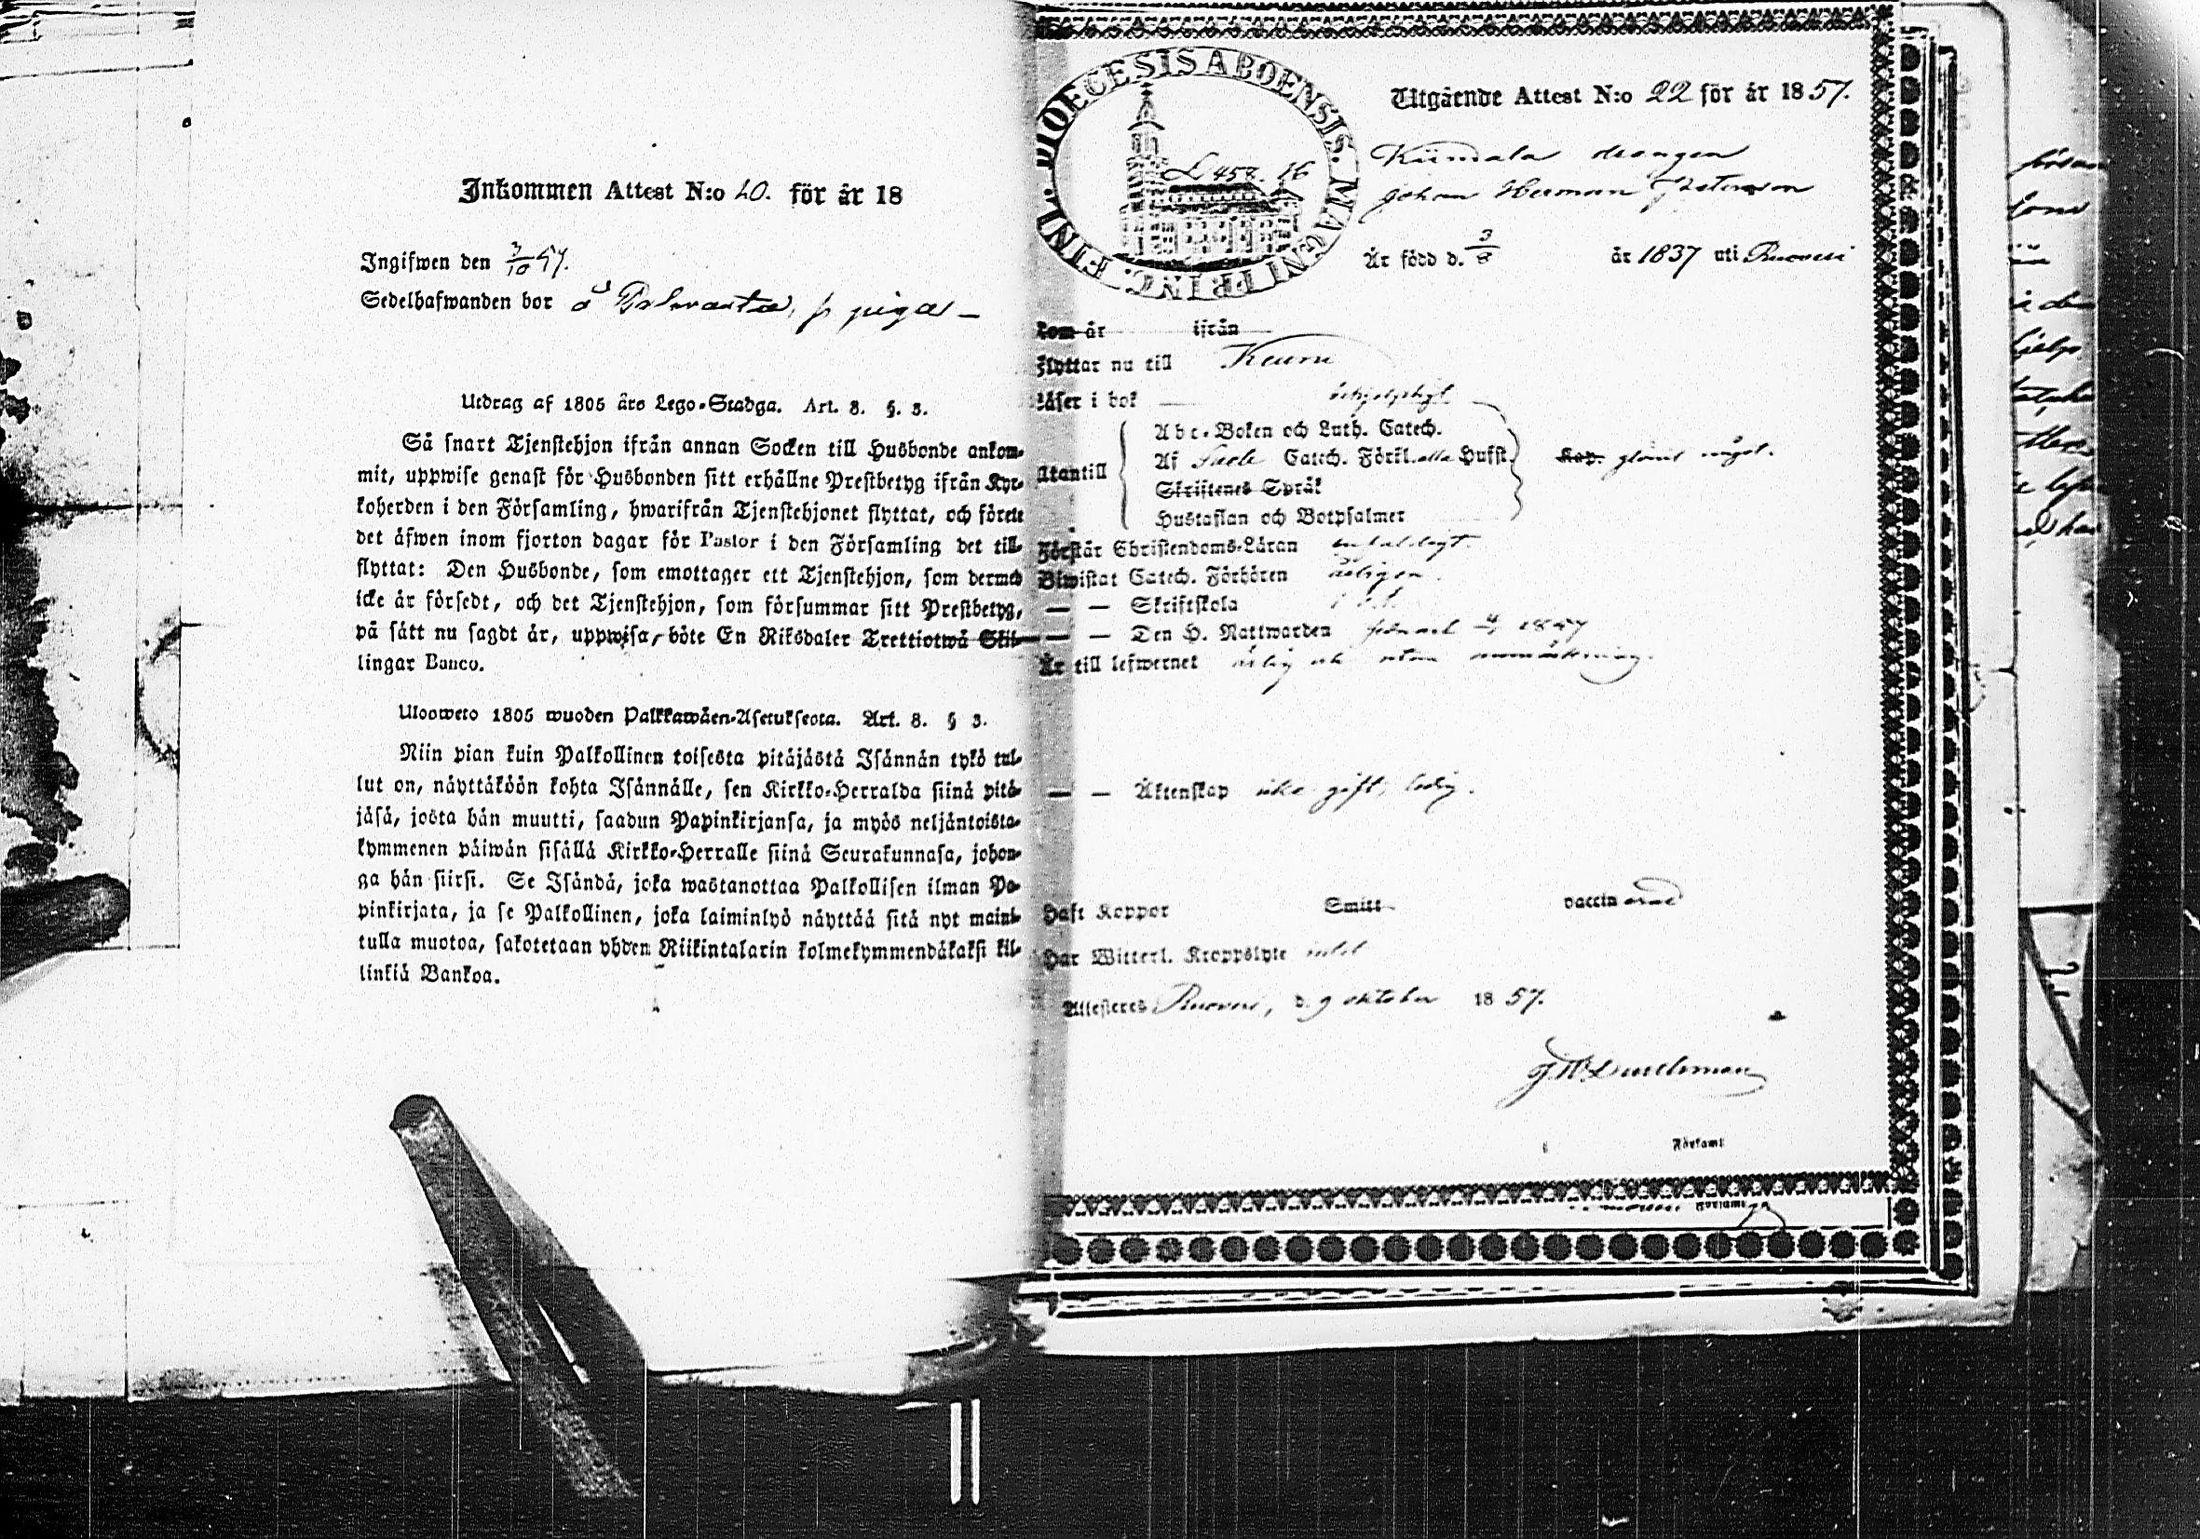 Inkommen Attest N:o 40. för år 18
Ingifwen den 3/10 57.
Sedelhafwanden bor å
Utdrag af 1805 års Lego-Stadga. Art. 8. §. 3.
Så snart Tjenstehjon ifrån annan Socken till Husbonde ankom-
mit, uppwise genast för Husbonden sitt erhållne Prestbetyg ifrån Kyr-
koherden i den Församling, hwarifrån Tjenstehjonet flyttat, och förete
det äfwen inom fjorton dagar för Pastor i den Församling det till-
flyttat: Den Husbonde, som emottager ett Tjenstehjon, som dermed
icke är försedt, och det Tjenstehjon, som försummar sitt Prestbetyg,
på sätt nu sagdt är, uppwisa, böte En Riksdaler Trettiotwå Skil-
lingar Banco.
Uloosweto 1805 wuoden Palkkawäen-Asetuksesta. Art. 8. § 3.
Niin pian kuin Palkollinen toisesta pitäjästä Isännän tykö tul-
lut on, näyttäköön kohta Isännälle, sen Kirkko-Herralda siinä pitä-
jäsä, josta hän muutti, saadun Papinkirjansa, ja myös neljäntoista-
kymmenen päiwän sisällä Kirkko-Herralle siinä Seurakunnasa, johon-
ga hän siirsi. Se Isändä, joka wastanottaa Palkollisen ilman Pa-
pinkirjata, ja se Palkollinen, joka laiminlyö näyttää sitä nyt maini-
tulla muotoa, sakotetaan yhden Riikintalarin kolmekymmendäkaksi kil-
linkiä Bankoa.
FINL. DIOECESIS ABOENSIS. MAGNI PRINC.
L 458. 16
Utgående Attest N:o 22 för år 1857.
Kiimala drängen
Johan Herman
Är född d. 3/8 år 1837 uti Ruovesi
Kom år ifrån
Flyttar nu till Keuru
Läser i bok
Utantill
Abc-Boken och Luth. Catech.
Af Catech. Förkl. Hufst. Kap. glömt något.
Skriftenes Språk
Hustaflan och Botpsalmer
Förstår Christendoms-Läran enfaldigt.
Biwistat Catech. Förhören årligen.
— — Skriftskola
— — Den H. Nattwarden 1857
Är till lefwernet ärlig och utan anmärkning.
— — Äktenskap icke gift, ledig.
Haft Koppor Smitt vaccinerad
Har Witterl. Kroppslyte intet
Attesteres Ruovesi, d. 9 oktober 1857.
Församl